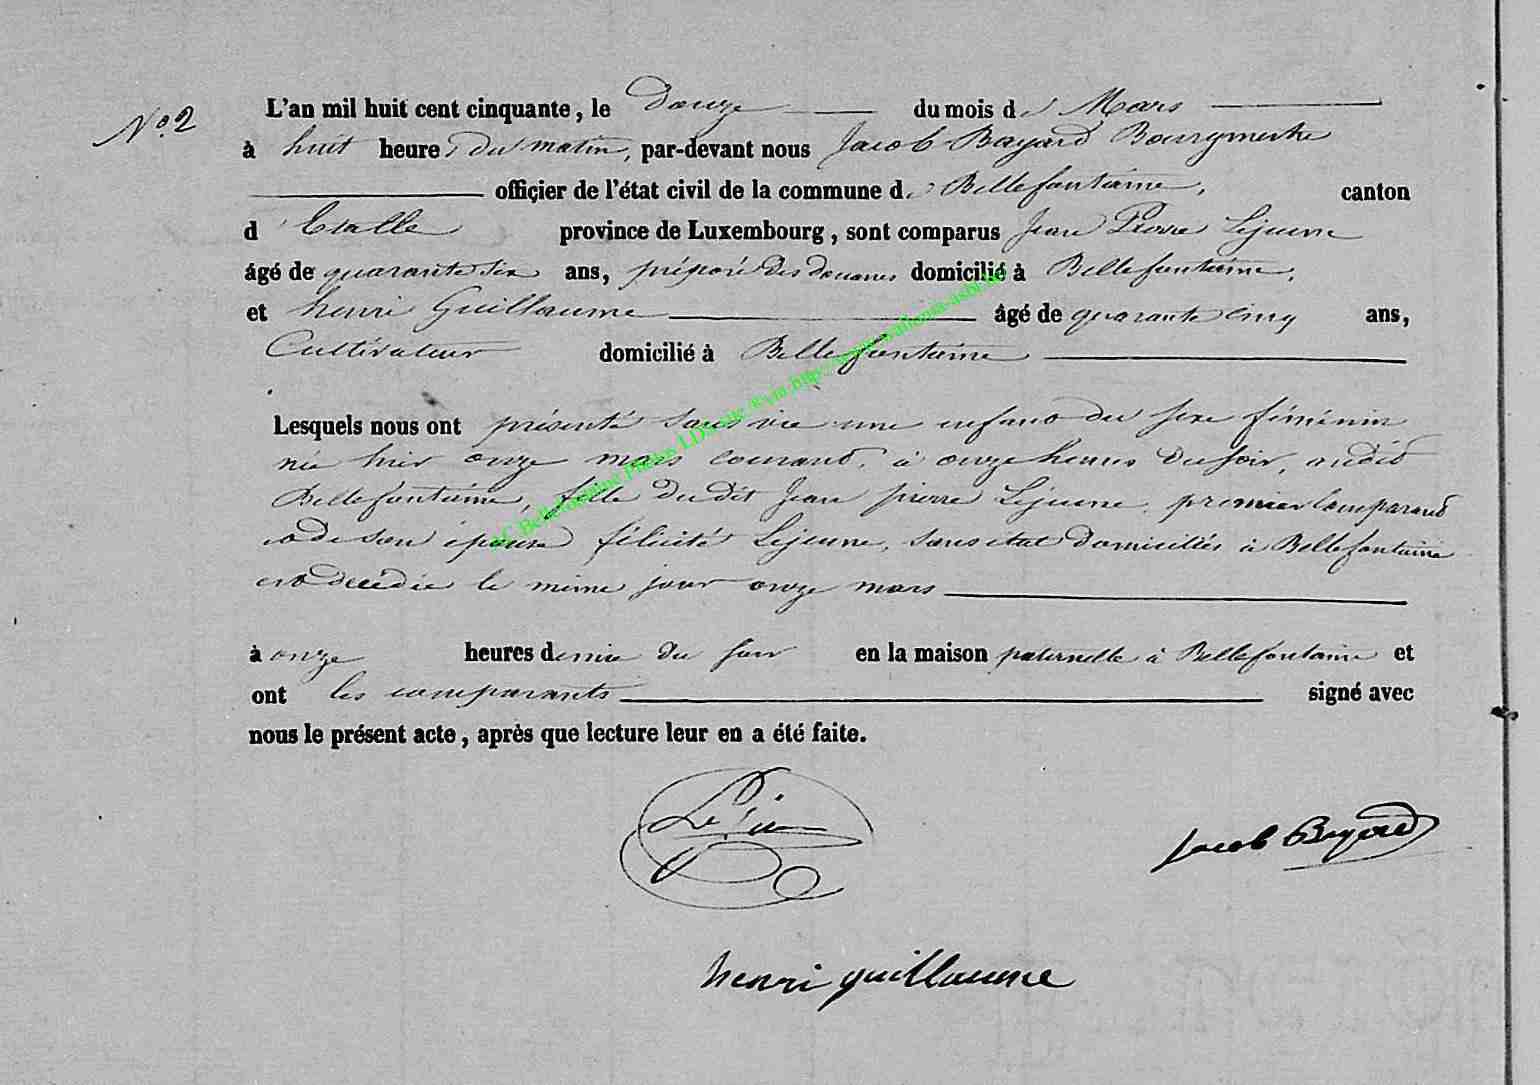 N.º 2
L'an mil huit cent cinquante, le Douze du mois de Mars
à huit heures du matin, par-devant nous Jacob Bayard Bourgmestre
offiçier de l'état civil de la commune de Bellefontaine, canton
d'Etalle province de Luxembourg, sont comparus Jean Pierre Lejeune
âgé de quarante six ans, préposé des douanes domicilié à Bellefontaine,
et henri Guillaume âgé de quarante cinq ans,
Cultivateur domicilié à Bellefontaine
Lesquels nous ont présenté sans vie une enfant du sexe féminin
née hier onze mars courant, à onze heures du soir, audit
Bellefontaine, fille dudit Jean pierre Lejeune, premier comparant
et de son épouse félicité Lejeune, sans etat domiciliés à Bellefontaine
est decedée le même jour onze mars
à onze heures demie du soir en la maison paternelle à Bellefontaine et
ont les comparants signé avec
nous le présent acte, après que lecture leur en a été faite.
Jacob Bayard
henri guillaume